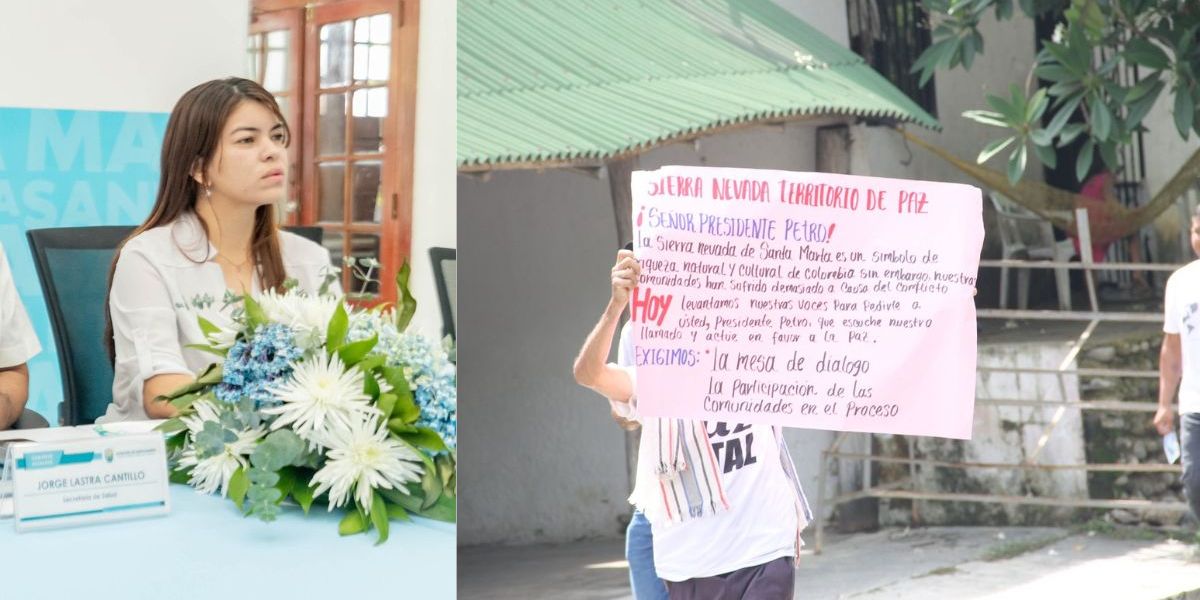 A MA
ASAN
JORGE LASTRA CANTILLO
Secretario de Salud
SIERRA NEVADA TERRITORIO DE PAZ
¡SEÑOR PRESIDENTE PETRO!
La Sierra nevada de Santa Marta es un simbolo de
riqueza natural y cultural de colombia sin embargo, nuestras
comunidades han sufrido demasiado a causa del conflicto
HOY levantamos nuestras voces para pedirle a
usted, Presidente Petro, que escuche nuestro
llamado y actue en favor a la paz.
EXIGIMOS: * la mesa de dialogo
la participación de las
Comunidades en el Proceso
TAL